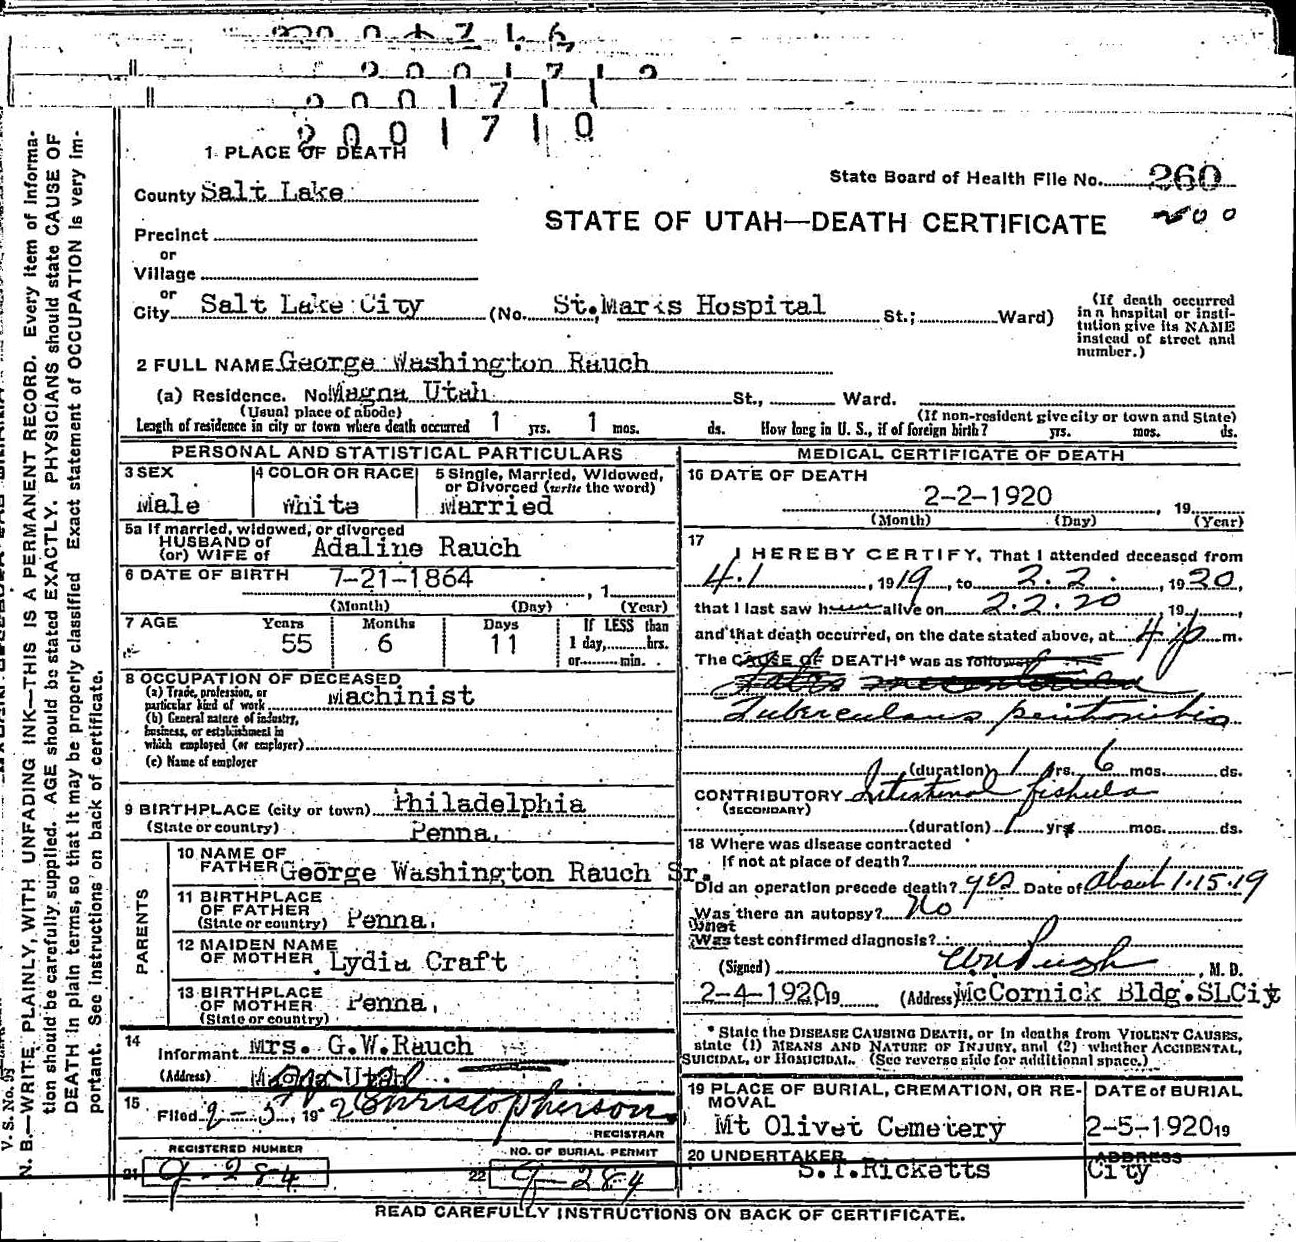 2001710
1 PLACE OF DEATH
State Board of Health File No. 260
County Salt Lake
STATE OF UTAH—DEATH CERTIFICATE
Precinct
or
Village
or
City Salt Lake City (No. St.Marks Hospital St.; Ward)
(If death occurred in a hospital or insti-
tution give its NAME
instead of street and
number.)
2 FULL NAME George Washington Rauch
(a) Residence. No Magna Utah St., Ward.
(Usual place of abode) (If non-resident give city or town and State)
Length of residence in city or town where death occurred 1 yrs. 1 mos. ds. How long in U. S., if of foreign birth? yrs. mos. ds.
PERSONAL AND STATISTICAL PARTICULARS
3 SEX
Male
4 COLOR OR RACE
White
5 Single, Married, Widowed,
or Divorced (write the word)
Married
5a If married, widowed, or divorced
HUSBAND of
(or) WIFE of Adaline Rauch
6 DATE OF BIRTH 7-21-1864 , 1
(Month) (Day) (Year)
7 AGE Years Months Days If LESS than
55 6 11 1 day, hrs.
or min.
8 OCCUPATION OF DECEASED
(a) Trade, profession, or
particular kind of work Machinist
(b) General nature of industry,
business, or establishment in
which employed (or employer)
(c) Name of employer
9 BIRTHPLACE (city or town) Philadelphia
(State or country) Penna.
PARENTS
10 NAME OF
FATHER George Washington Rauch Sr.
11 BIRTHPLACE
OF FATHER
(State or country) Penna.
12 MAIDEN NAME
OF MOTHER Lydia Craft
13 BIRTHPLACE
OF MOTHER Penna.
(State or country)
14
Informant Mrs. G.W.Rauch
(Address) Magna Utah
15
Filed 2-5, 192 Christopherson
REGISTRAR
REGISTERED NUMBER NO. OF BURIAL PERMIT
21 9-284 22 9-284
MEDICAL CERTIFICATE OF DEATH
16 DATE OF DEATH
2-2-1920 , 19
(Month) (Day) (Year)
17
I HEREBY CERTIFY, That I attended deceased from
4.1 , 1919, to 2.2. , 1920,
that I last saw h alive on 2.2.20 , 19 ,
and that death occurred, on the date stated above, at 4 p m.
The CAUSE OF DEATH* was as follows:
Tuberculous peritonitis
(duration) 1 yrs. 6 mos. ds.
CONTRIBUTORY Intestinal fishula
(SECONDARY)
(duration) 1 yrs mos. ds.
18 Where was disease contracted
if not at place of death?
Did an operation precede death? yes Date of about 1.15.19
Was there an autopsy? No
What
Was test confirmed diagnosis?
(Signed) , M. D.
2-4-1920 19 (Address) McCornick Bldg.SLCity
* State the DISEASE CAUSING DEATH, or in deaths from VIOLENT CAUSES,
state (1) MEANS AND NATURE OF INJURY, and (2) whether ACCIDENTAL,
SUICIDAL, or HOMICIDAL. (See reverse side for additional space.)
19 PLACE OF BURIAL, CREMATION, OR RE-
MOVAL
Mt Olivet Cemetery
DATE of BURIAL
2-5-1920 19
20 UNDERTAKER
S.T.Ricketts
ADDRESS
City
READ CAREFULLY INSTRUCTIONS ON BACK OF CERTIFICATE.
N. B.—WRITE PLAINLY, WITH UNFADING INK—THIS IS A PERMANENT RECORD. Every item of informa-
tion should be carefully supplied. AGE should be stated EXACTLY. PHYSICIANS should state CAUSE OF
DEATH in plain terms, so that it may be properly classified. Exact statement of OCCUPATION is very im-
portant. See instructions on back of certificate.